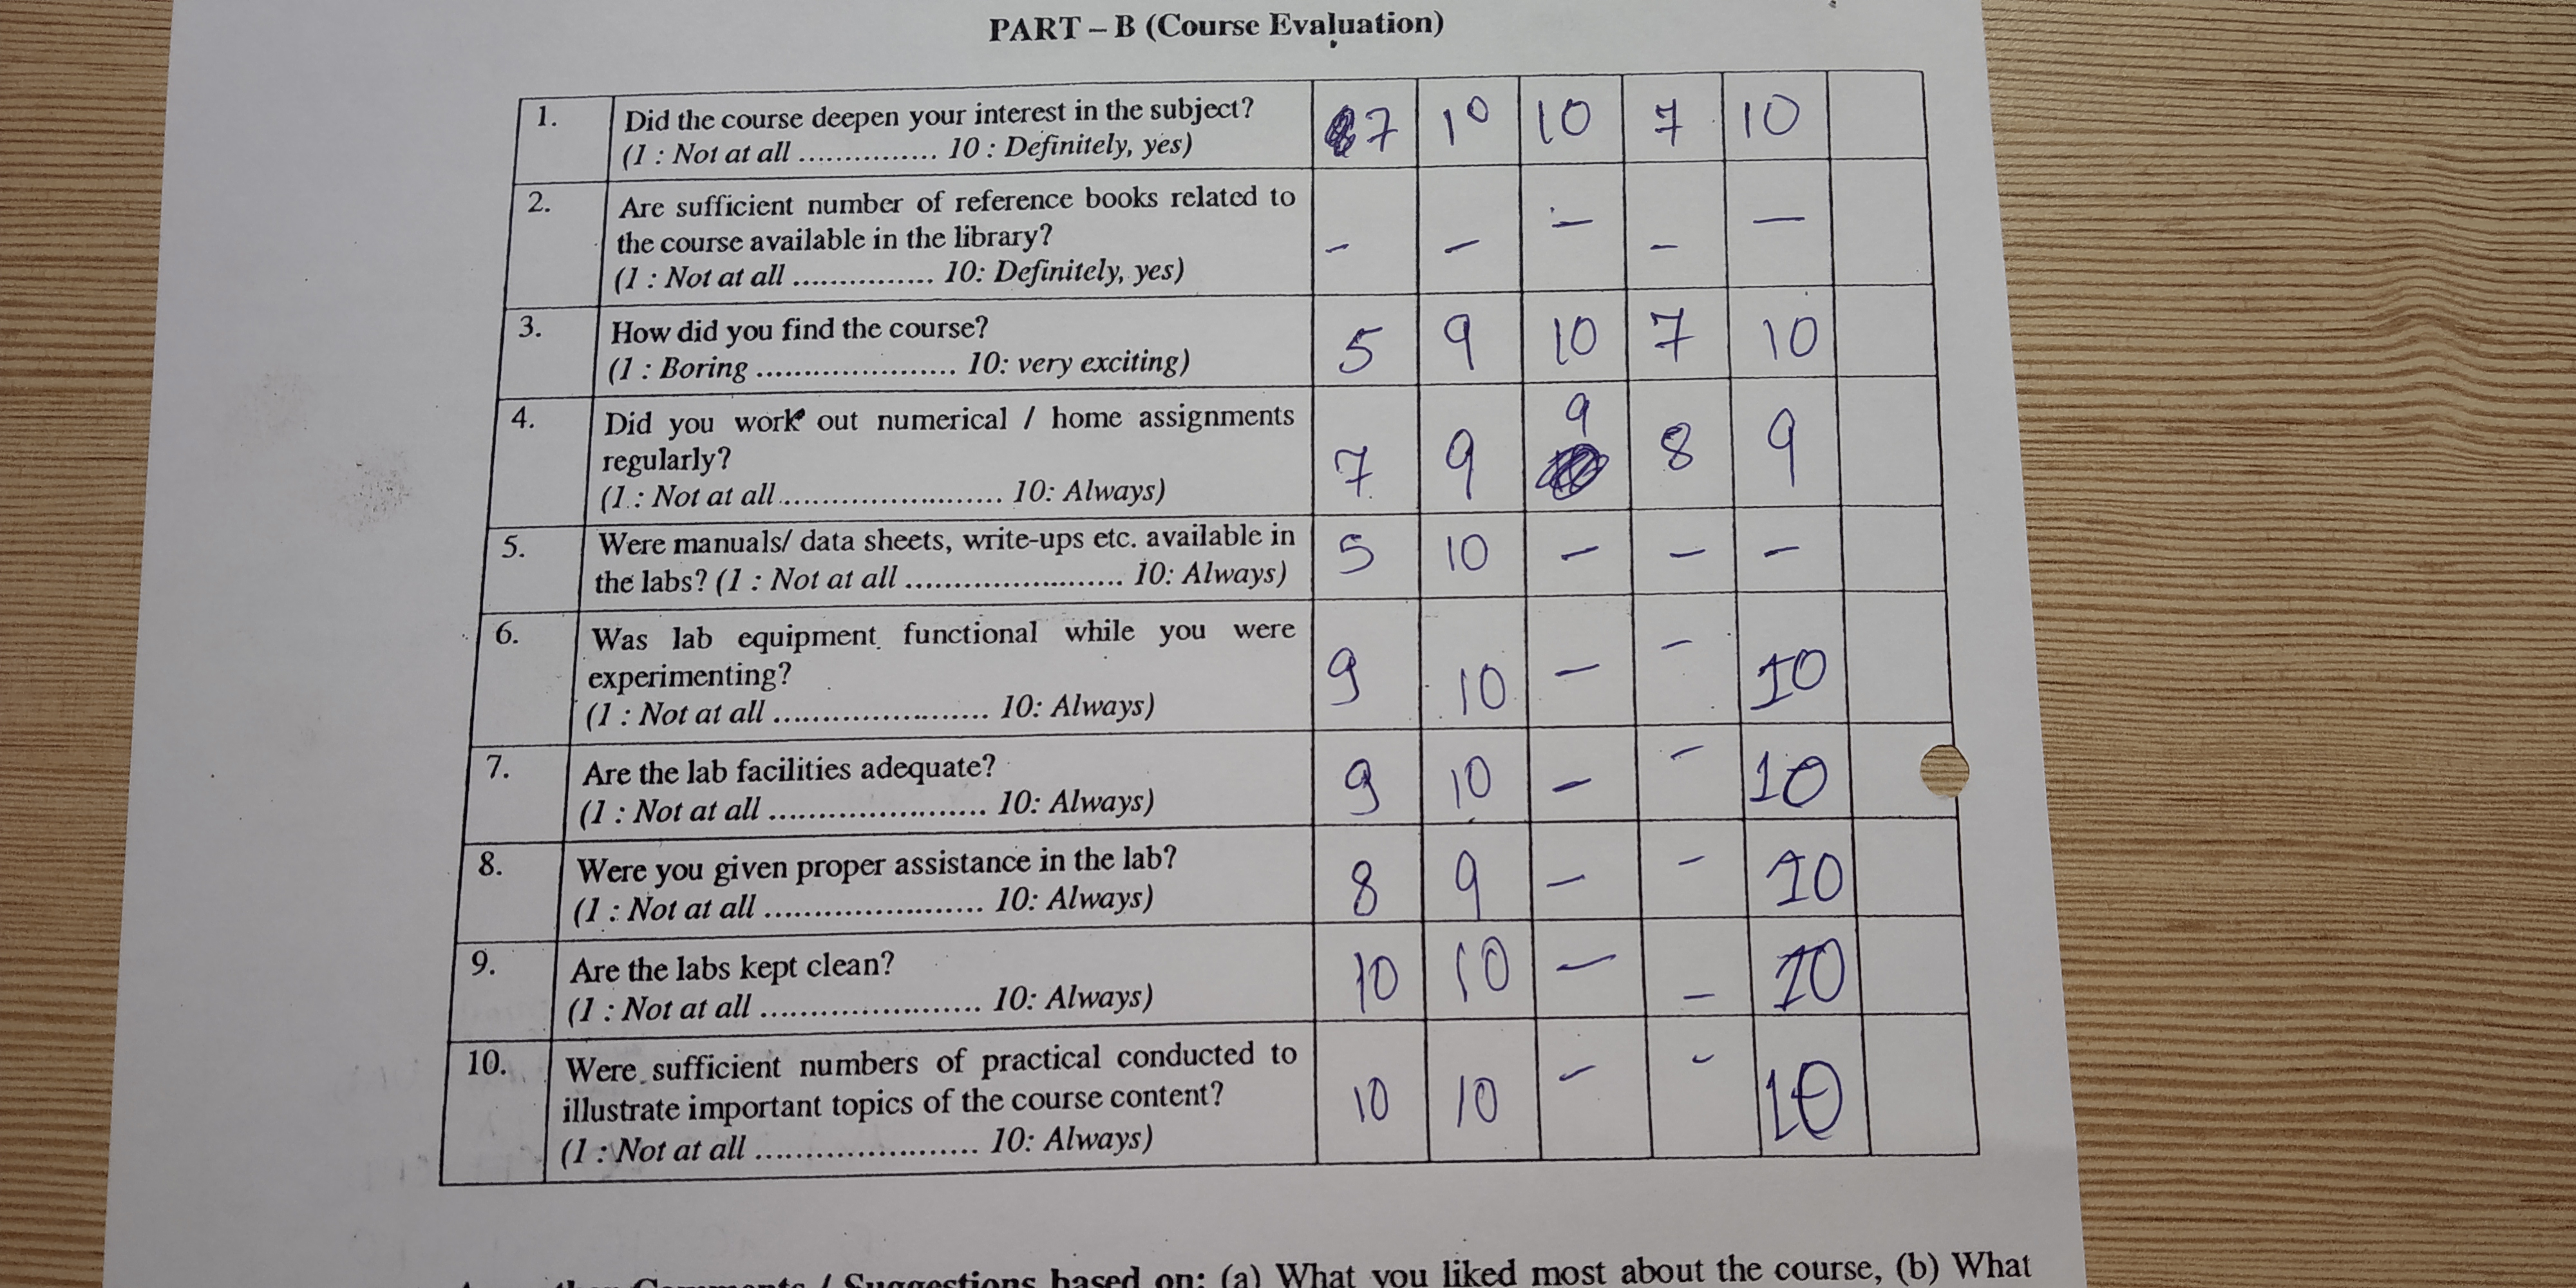 PART – B (Course Evaluation)
1. Did the course deepen your interest in the subject? 7 10 10 7 10
(1 : Not at all ............... 10 : Definitely, yes)
2. Are sufficient number of reference books related to
the course available in the library? - - - - -
(1 : Not at all ............... 10: Definitely, yes)
3. How did you find the course? 5 9 10 7 10
(1 : Boring ..................... 10: very exciting)
4. Did you work out numerical / home assignments 9
regularly? 7 9 8 9
(1 : Not at all ........................ 10: Always)
5. Were manuals/ data sheets, write-ups etc. available in 5 10 - - -
the labs? (1 : Not at all ....................... 10: Always)
6. Was lab equipment functional while you were
experimenting? 9 10 - - 10
(1 : Not at all ....................... 10: Always)
7. Are the lab facilities adequate? 9 10 - - 10
(1 : Not at all ....................... 10: Always)
8. Were you given proper assistance in the lab? 8 9 - - 10
(1 : Not at all ....................... 10: Always)
9. Are the labs kept clean? 10 10 - - 10
(1 : Not at all ....................... 10: Always)
10. Were sufficient numbers of practical conducted to
illustrate important topics of the course content? 10 10 - - 10
(1 : Not at all ....................... 10: Always)
Comments / Suggestions based on: (a) What you liked most about the course, (b) What